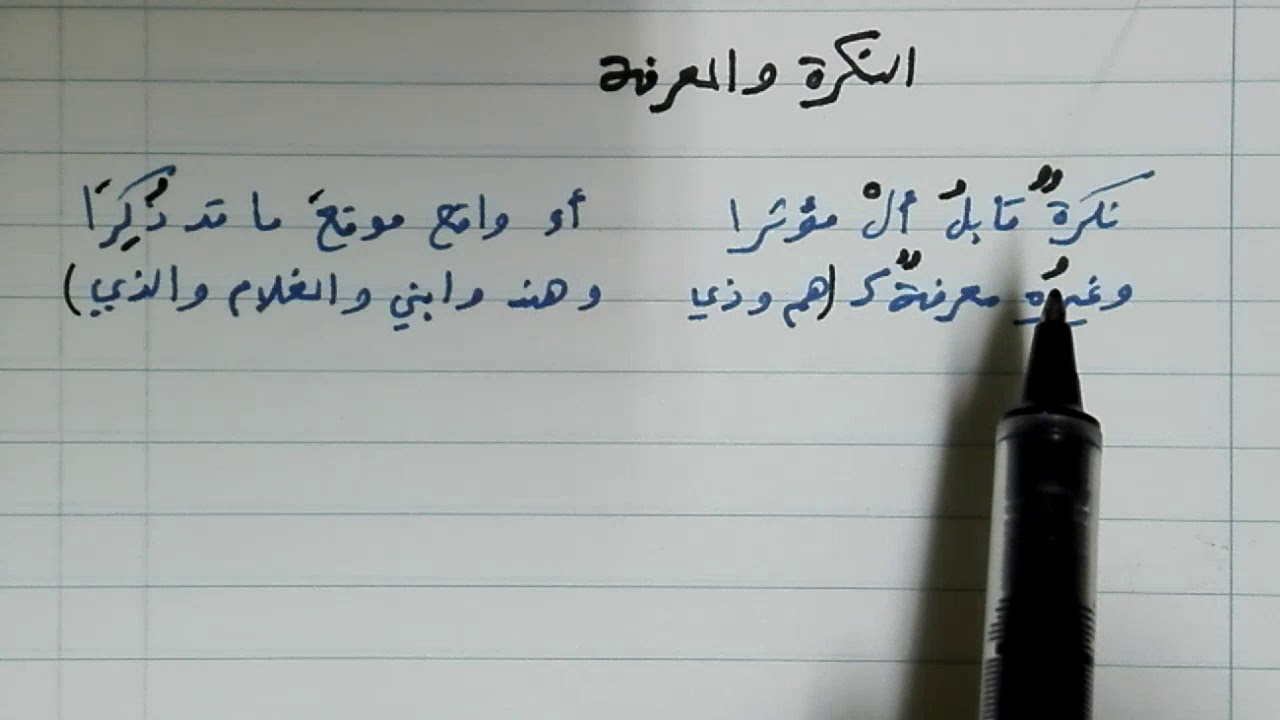 النكرة والمعرفة
نكرةٌ قابلُ ألْ مؤثرا أو واقع موقعَ ما قد ذُكِرَا
وغيرُه معرفةٌ كـ (هم وذي وهند وابني والغلام والذي)